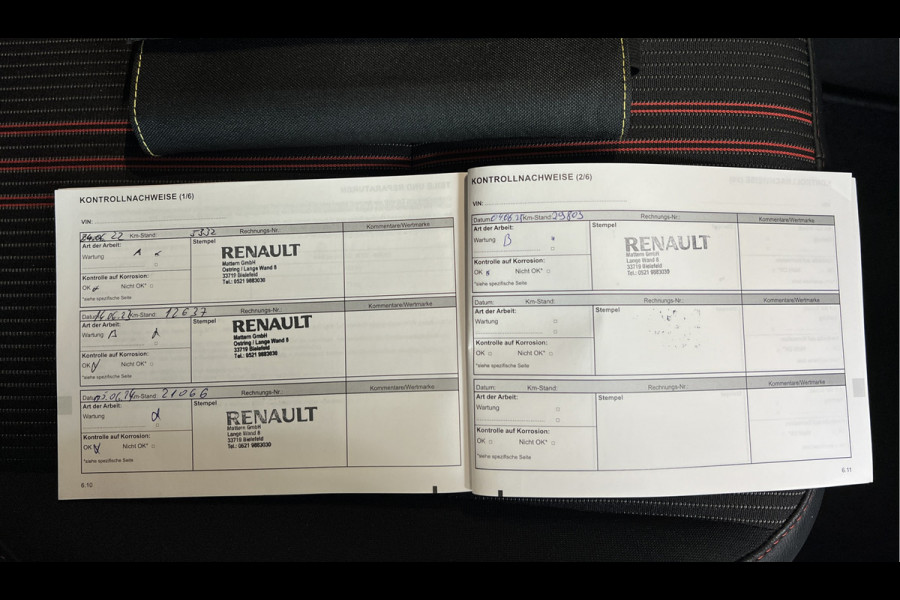 KONTROLLNACHWEISE (1/6)
VIN:
24.06.22 Km-Stand: 5332 Rechnungs-Nr.: Kommentare/Wertmarke
Art der Arbeit: Stempel
Wartung A
RENAULT
Mattern GmbH
Ostring / Lange Wand 8
33719 Bielefeld
Tel.: 0521 9883030
Kontrolle auf Korrosion:
OK Nicht OK*
*siehe spezifische Seite
Datum: 16.06.23 Km-Stand: 12637 Rechnungs-Nr.: Kommentare/Wertmarke
Art der Arbeit: Stempel
Wartung B
RENAULT
Mattern GmbH
Ostring / Lange Wand 8
33719 Bielefeld
Tel.: 0521 9883030
Kontrolle auf Korrosion:
OK Nicht OK*
*siehe spezifische Seite
Datum: 03.06.24 Km-Stand: 21066 Rechnungs-Nr.: Kommentare/Wertmarke
Art der Arbeit: Stempel
Wartung
RENAULT
Mattern GmbH
Lange Wand 8
33719 Bielefeld
Tel.: 0521 9883030
Kontrolle auf Korrosion:
OK Nicht OK*
*siehe spezifische Seite
6.10
KONTROLLNACHWEISE (2/6)
VIN:
Datum: 04.06.25 Km-Stand: 29803 Rechnungs-Nr.: Kommentare/Wertmarke
Art der Arbeit: Stempel
Wartung B
RENAULT
Mattern GmbH
Lange Wand 8
33719 Bielefeld
Tel.: 0521 9883030
Kontrolle auf Korrosion:
OK Nicht OK*
*siehe spezifische Seite
Datum: Km-Stand: Rechnungs-Nr.: Kommentare/Wertmarke
Art der Arbeit: Stempel
Wartung
Kontrolle auf Korrosion:
OK Nicht OK*
*siehe spezifische Seite
Datum: Km-Stand: Rechnungs-Nr.: Kommentare/Wertmarke
Art der Arbeit: Stempel
Wartung
Kontrolle auf Korrosion:
OK Nicht OK*
*siehe spezifische Seite
6.11